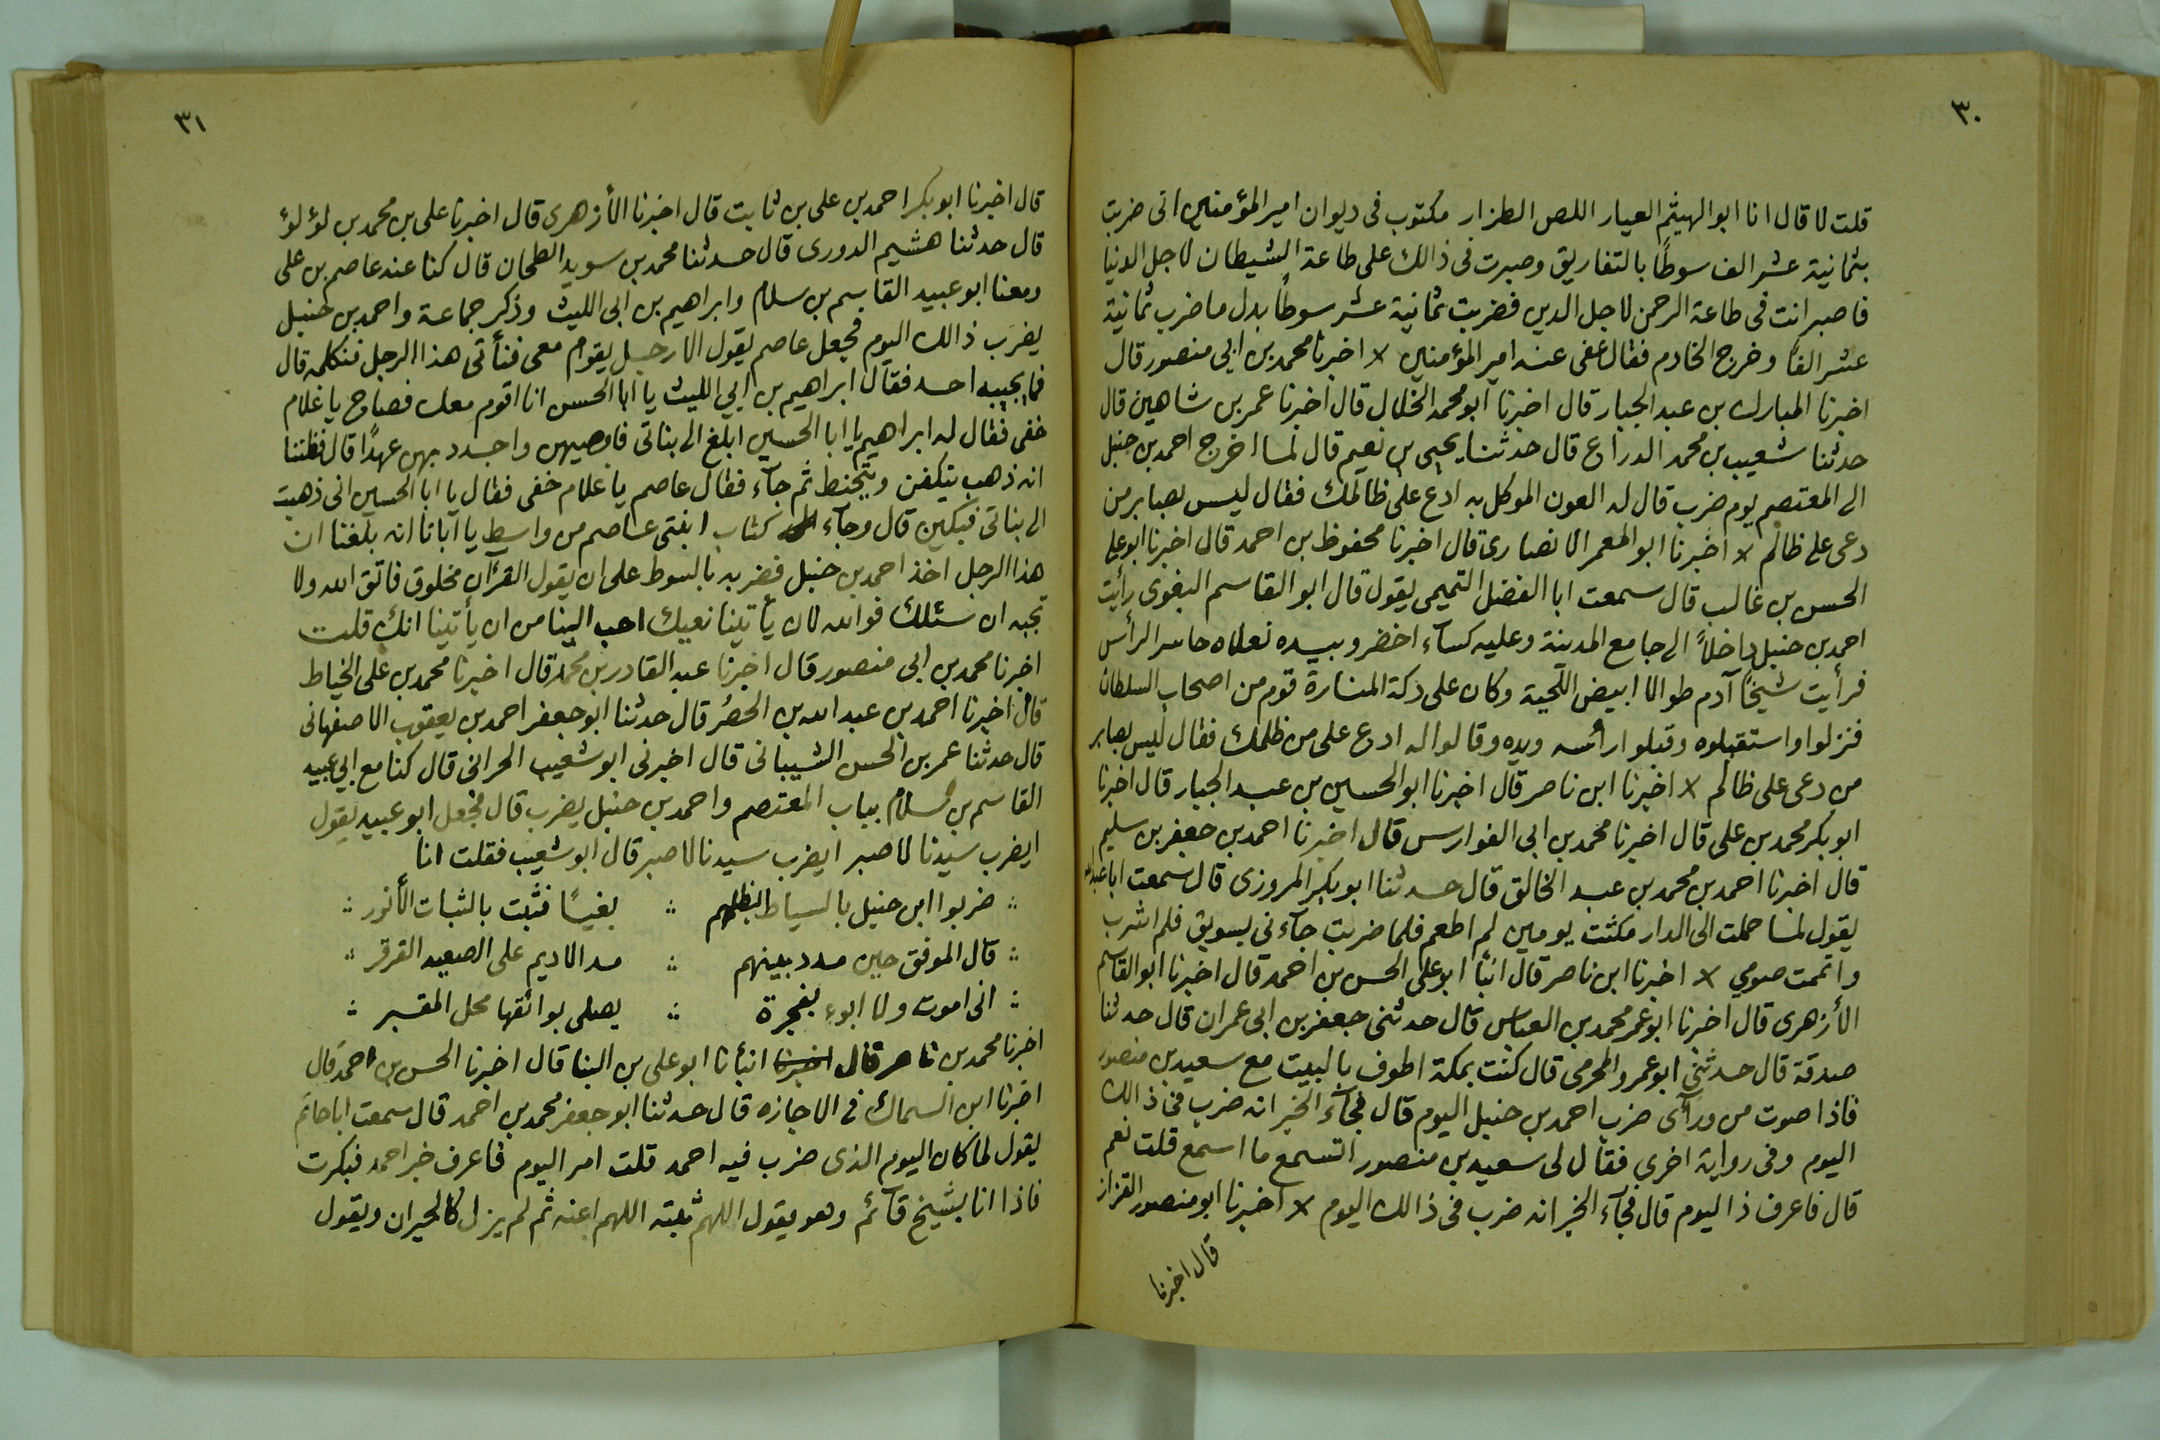 ٣٠
قلت لا قال انا ابو الهيثم العيار اللص الطرار مكتوب فى ديوان امير المؤمنين انى ضربت
بثمانية عشر الف سوطاً بالتفاريق وصبرت فى ذالك على طاعة الشيطان لاجل الدنيا
فاصبر انت فى طاعة الرحمن لاجل الدين فضربت ثمانية عشر سوطاً بدل ما ضرب ثمانية
عشر الفاً وخرج الخادم فقال عفى عنه امير المؤمنين × اخبرنا محمد بن ابى منصور قال
اخبرنا المبارك بن عبد الجبار قال اخبرنا ابو محمد الخلال قال اخبرنا عمر بن شاهين قال
حدثنا شعيب بن محمد الدراع قال حدثنا يحيى بن نعيم قال لما اخرج احمد بن حنبل
الى المعتصم يوم ضرب قال له العون الموكل به ادع على ظالمك فقال ليس بصابر من
دعى على ظالم × اخبرنا ابو المعمر الانصارى قال اخبرنا محفوظ بن احمد قال اخبرنا ابو على
الحسن بن غالب قال سمعت ابا الفضل التميمى يقول قال ابو القاسم البغوى رأيت
احمد بن حنبل داخلاً الى جامع المدينة وعليه كساء اخضر وبيده نعلاه حاسر الرأس
فرأيت شيخاً آدم طوالا ابيض اللحية وكان على دكة المنارة قوم من اصحاب السلطان
فنزلوا واستقبلوه وقبلوا رأسه ويده وقالوا له ادع على من ظلمك فقال ليس بصابر
من دعى على ظالم × اخبرنا ابن ناصر قال اخبرنا ابو الحسين بن عبد الجبار قال اخبرنا
ابو بكر محمد بن على قال اخبرنا محمد بن ابى الفوارس قال اخبرنا احمد بن جعفر بن سليم
قال اخبرنا احمد بن محمد بن عبد الخالق قال حدثنا ابو بكر المروزى قال سمعت ابا عبد الله
يقول لما حملت الى الدار مكثت يومين لم اطعم فلما ضربت جآءنى بسويق فلم اشرب
واتممت صومي × اخبرنا ابن ناصر قال انبأ ابو على الحسن بن احمد قال اخبرنا ابو القاسم
الأزهرى قال اخبرنا ابو عمر محمد بن العباس قال حدثنى جعفر بن ابى عمران قال حدثنا
صدقة قال حدثني ابو عمرو المخرمى قال كنت بمكة اطوف بالبيت مع سعيد بن منصور
فاذا صوت من ورآئ ضرب احمد بن حنبل اليوم قال فجآء الخبر انه ضرب فى ذالك
اليوم وفى رواية اخرى فقال لى سعيد بن منصور اتسمع ما اسمع قلت نعم
قال فاعرف ذا اليوم قال فجآء الخبر انه ضرب فى ذالك اليوم × اخبرنا ابو منصور القزاز
قال اخبرنا
٣١
قال اخبرنا ابو بكر احمد بن على بن ثابت قال اخبرنا الأزهرى قال اخبرنا على بن محمد بن لؤلؤ
قال حدثنا هشيم الدورى قال حدثنا محمد بن سويد الطحان قال كنا عند عاصم بن على
ومعنا ابو عبيد القاسم بن سلام وابراهيم بن ابى الليث وذكر جماعة واحمد بن حنبل
يضرب ذالك اليوم فجعل عاصم يقول الا رجل يقوم معى فنأتى هذا الرجل فنكلمه قال
فما يجيبه احد فقال ابراهيم بن ابي الليث يا ابا الحسن انا اقوم معك فصاح يا غلام
خفى فقال له ابراهيم يا ابا الحسين ابلغ الى بناتى فاوصيهن واجدد بهن عهدًا قال فظننا
انه ذهب يتكفن ويتحنط ثم جآء فقال عاصم يا غلام خفى فقال يا ابا الحسين انى ذهبت
الى بناتى فبكين قال وجآء كتاب ابنتى عاصم من واسط يا ابانا انه بلغنا ان
هذا الرجل اخذ احمد بن حنبل فضربه بالسوط على ان يقول القرآن مخلوق فاتق الله ولا
تجبه ان سئلك فوالله لان يأتينا نعيك احب الينا من ان يأتينا انك قلت
اخبرنا محمد بن ابى منصور قال اخبرنا عبد القادر بن محمد قال اخبرنا محمد بن على الخياط
قال اخبرنا احمد بن عبد الله بن الخضر قال حدثنا ابو جعفر احمد بن يعقوب الاصفهانى
قال حدثنا عمر بن الحسن الشيبانى قال اخبرنى ابو شعيب الحرانى قال كنا مع ابي عبيد
القاسم بن سلام بباب المعتصم واحمد بن حنبل يضرب قال فجعل ابو عبيد يقول
ايضرب سيدنا لا صبر ايضرب سيدنا لا صبر قال ابو شعيب فقلت انا
ضربوا ابن حنبل بالسياط بظلمهم بغياً فثبت بالثبات الأنور
قال الموفق حين مدد بينهم مد الاديم على الصعيد القرقر
انى اموت ولا ابوء بفجرة يصلى بوائقها محل المقبر
اخبرنا محمد بن ناصر قال اخبرنا انبأنا ابو على بن البنا قال اخبرنا الحسن بن احمد قال
اخبرنا ابن السماك فى الاجازه قال حدثنا ابو جعفر محمد بن احمد قال سمعت ابا حاتم
يقول لما كان اليوم الذى ضرب فيه احمد قلت امر اليوم فاعرف خبر احمد فبكرت
فاذا انا بشيخ قآئم وهو يقول اللهم ثبته اللهم اعنه ثم لم يزل كالحيران ويقول